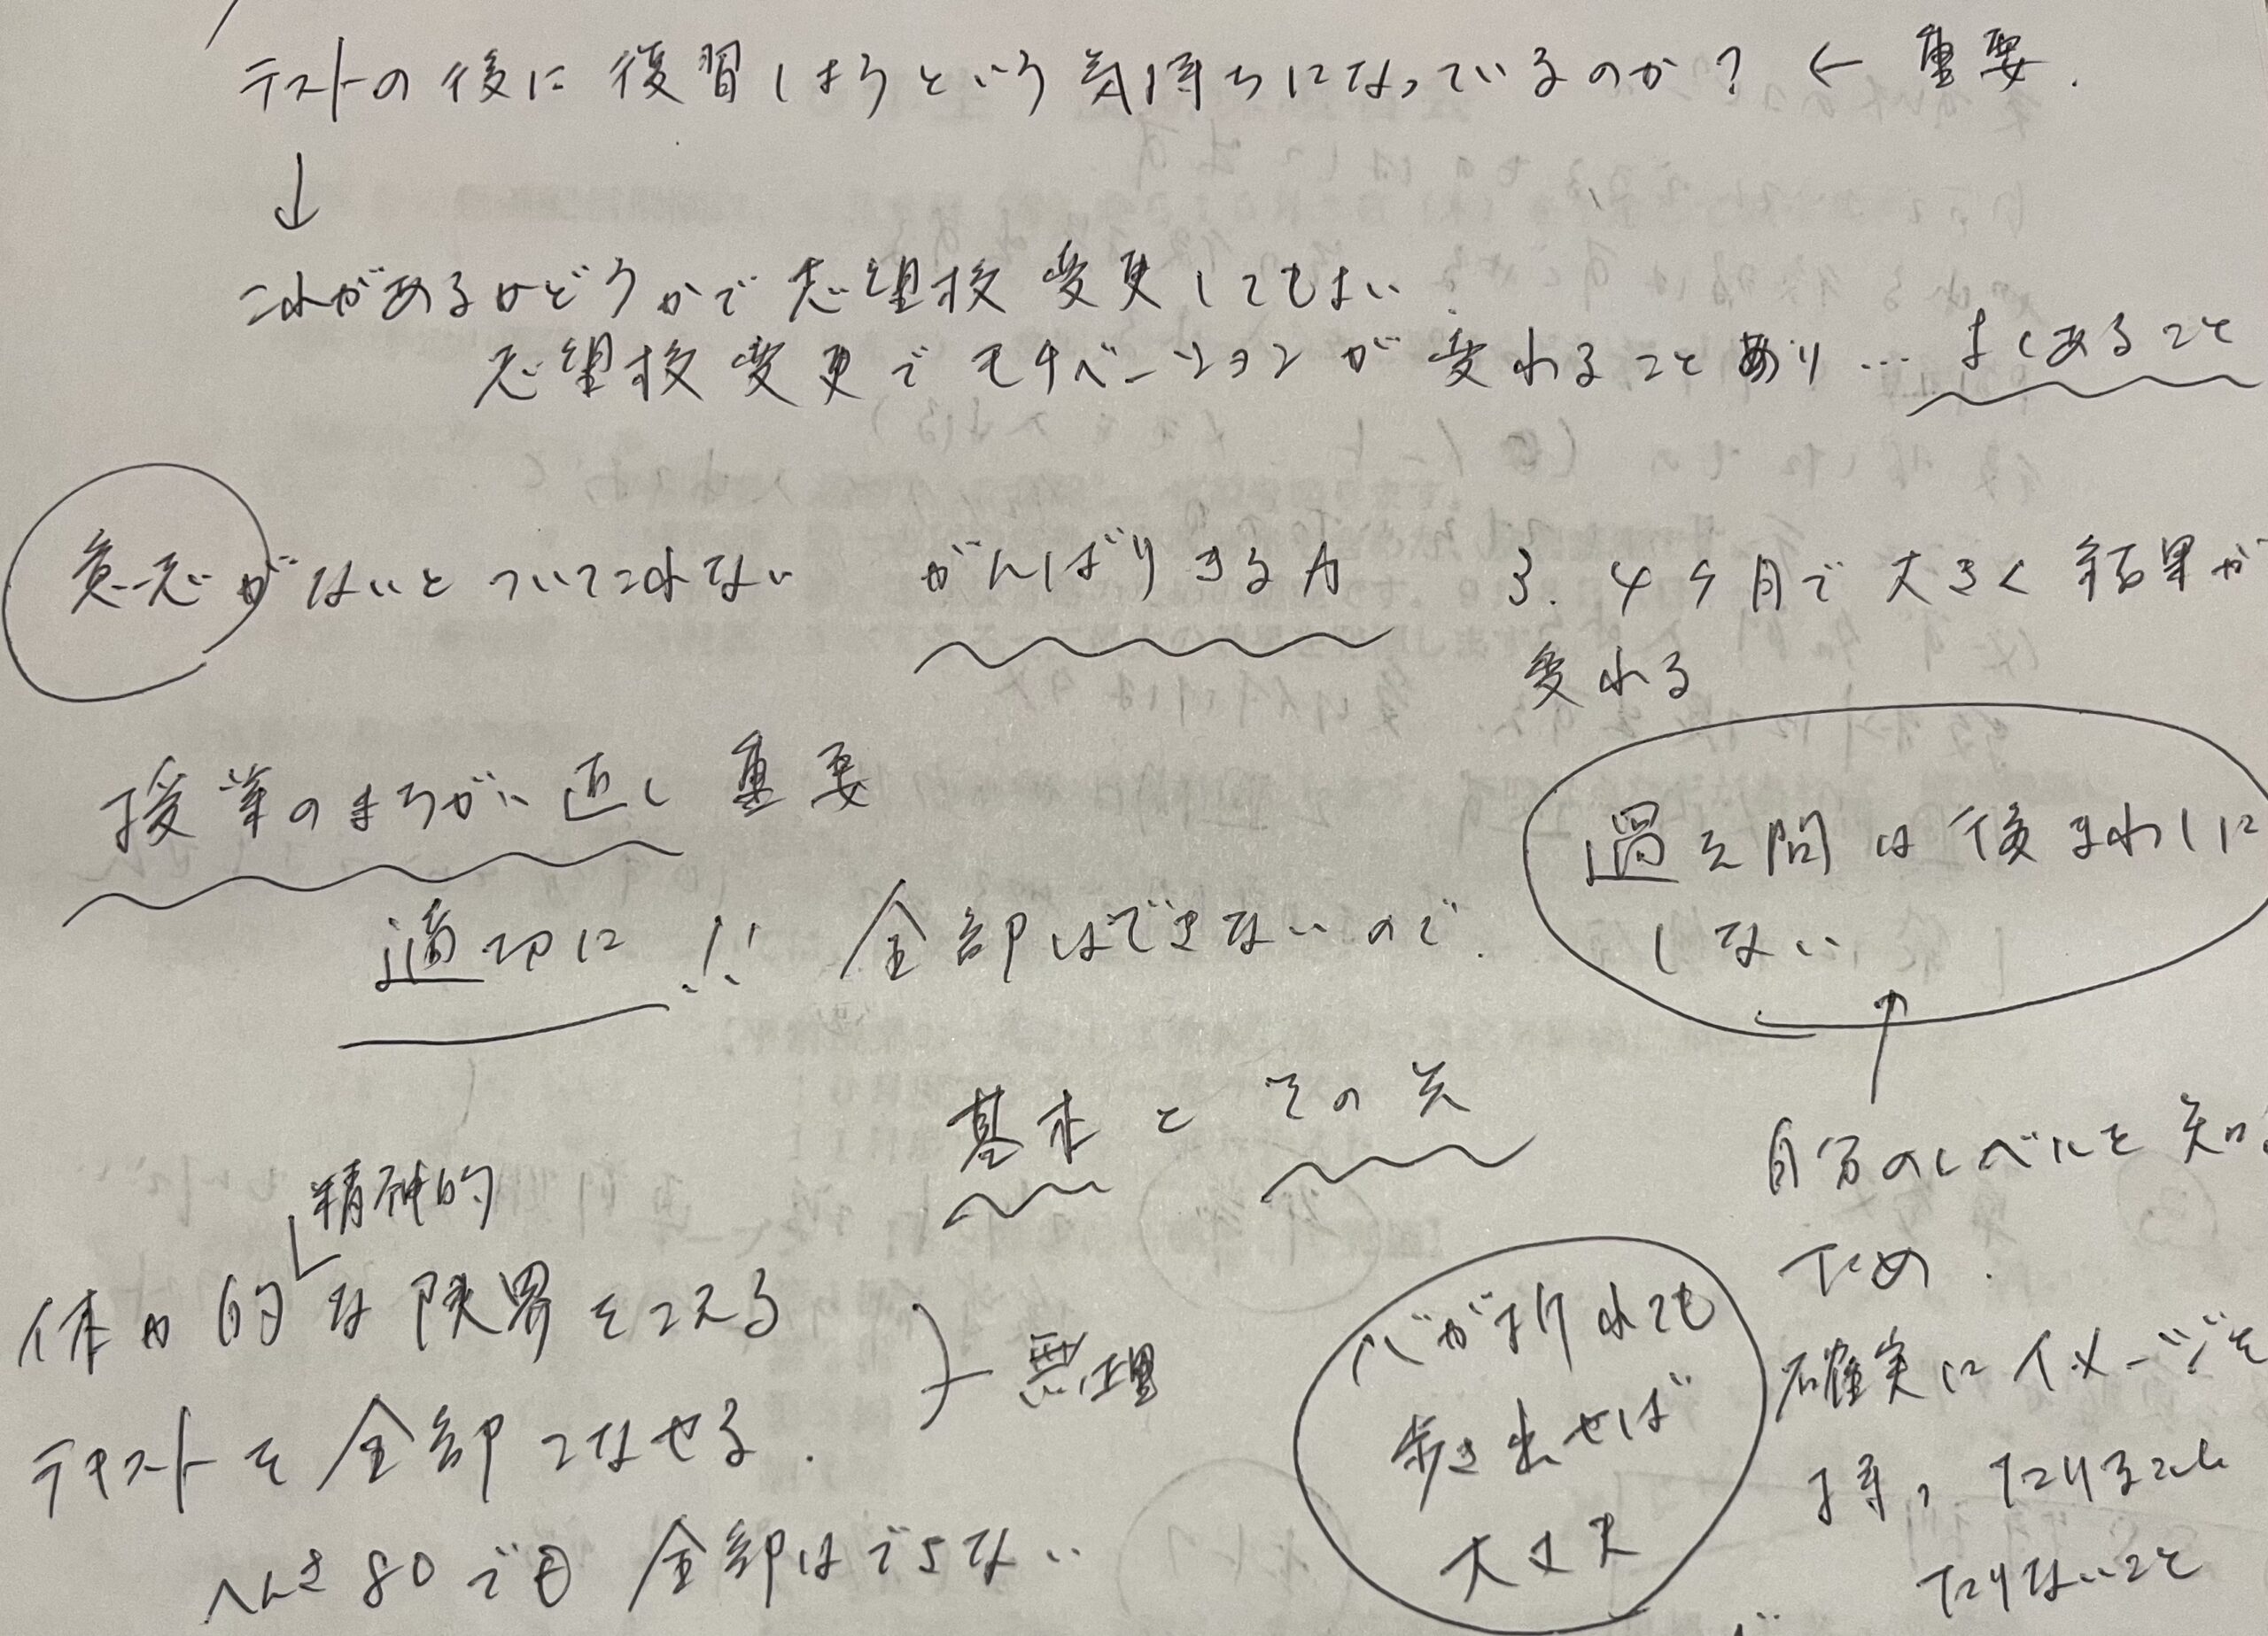 テストの後に復習しようという気持ちになっているのか? ← 重要.
↓
これがあるかどうかで志望校変更してもよい
志望校変更でモチベーションが変わることあり… よくあること
意志がないとついてこれない がんばりきる力 3.4ヶ月で大きく結果が
変わる
授業のまちがい直し重要
適切に!! 全部はできないので.
過去問は後まわしに
しない
基本とその先
自分のレベルを知る
ため.
精神的
体力的な限界をこえる
テキストを全部こなせる.
無理
へんさ80でも全部はできない
心が折れても
歩き出せば
大丈夫
確実にイメージを
持つ たりること
たりないこと